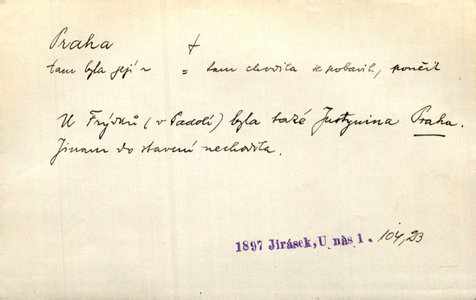 Praha +
tam byla její ~ = tam chodila se pobavit, poučit
U Frýdků (v Padolí) byla také Justynina Praha.
Jinam do stavení nechodila.
1897 Jirásek, U nás 1. 104, 23